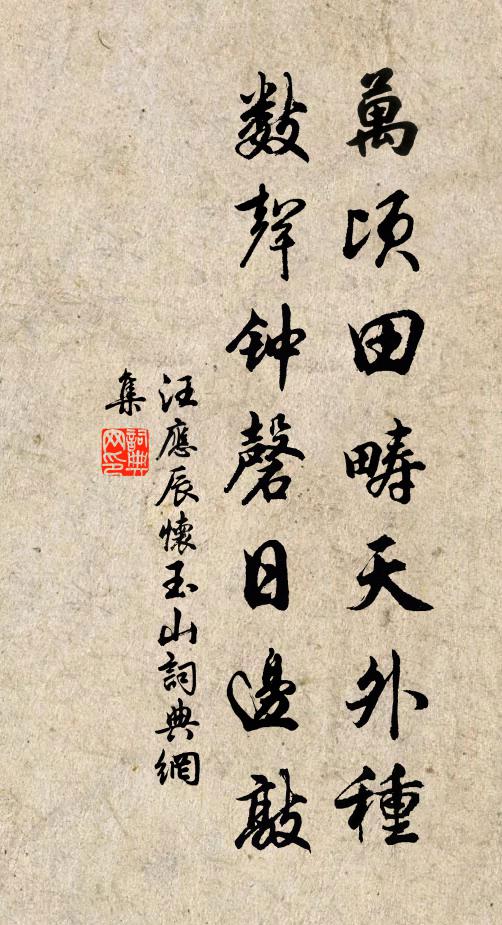 萬頃田疇天外種
数聲钟磬日邊敲
汪應辰懷玉山詞典網
集
詞典网印